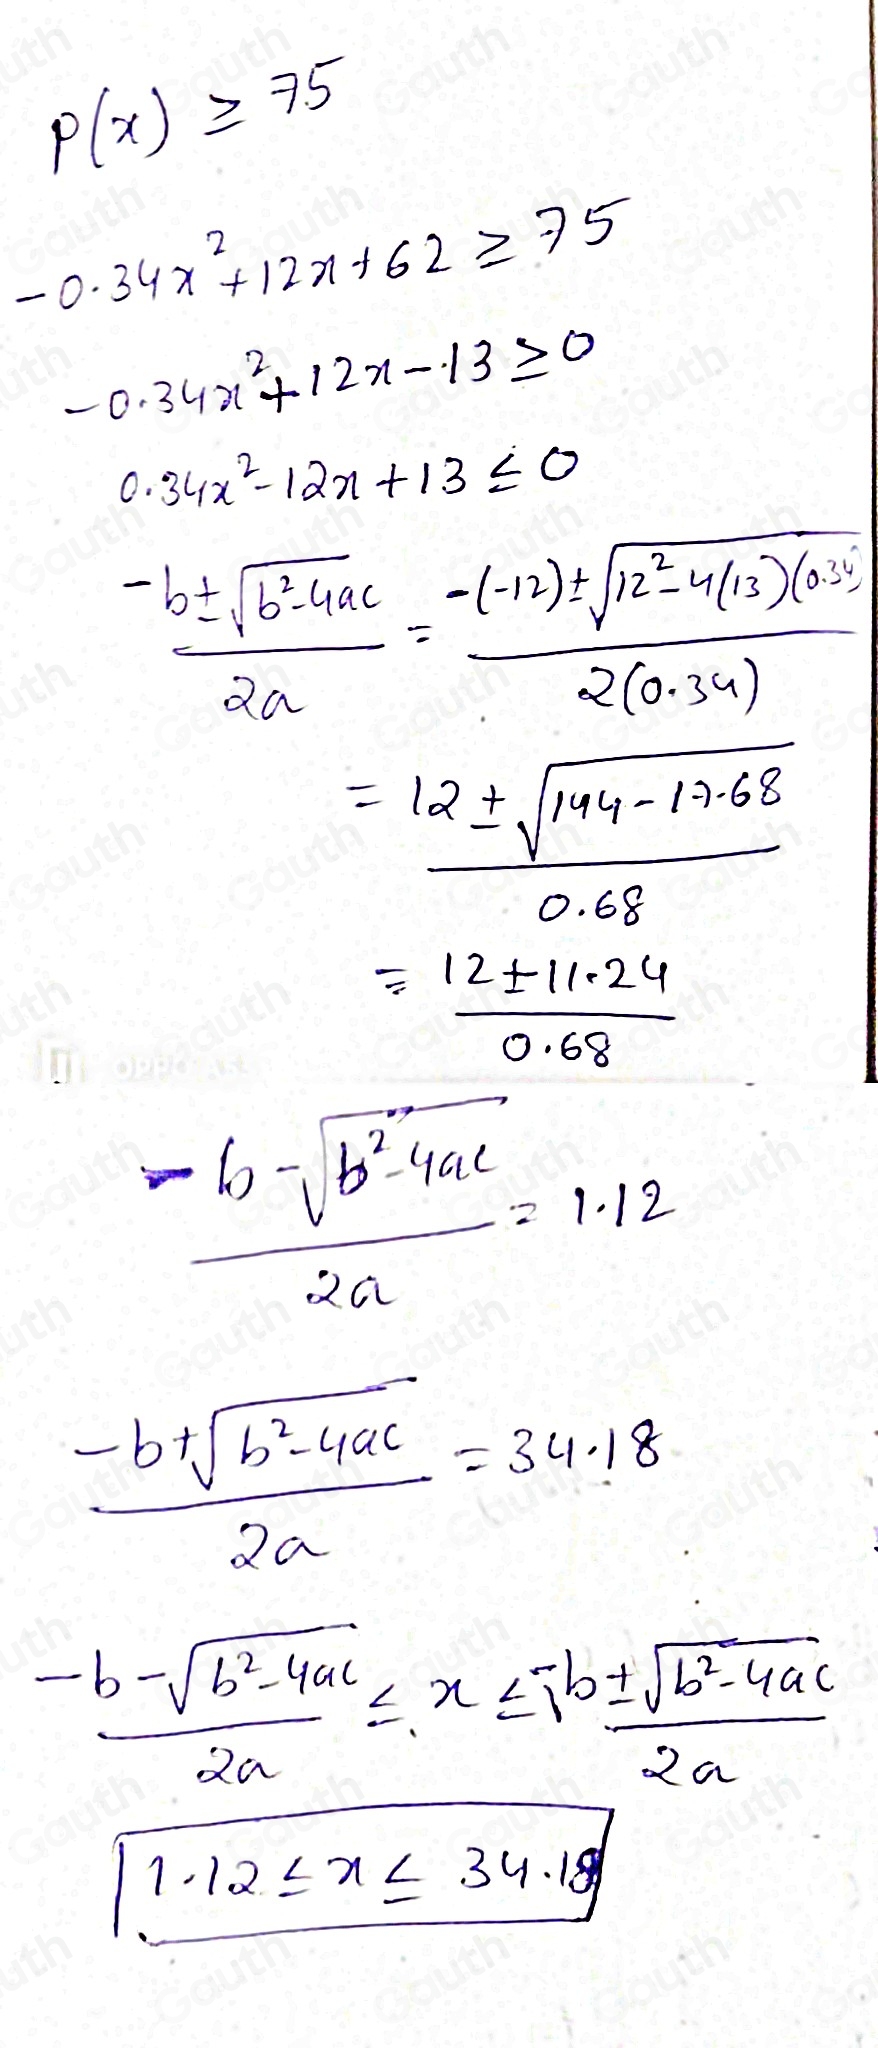 p(x) ≥ 75
-0.34x²+12x+62 ≥ 75
-0.34x²+12x-13 ≥ 0
0.34x²-12x+13 ≤ 0
-b±√(b²-4ac) / 2a = -(-12)±√(12²-4(13)(0.34)) / 2(0.34)
= 12±√(144-17.68) / 0.68
= 12±11.24 / 0.68
-b-√(b²-4ac) / 2a = 1.12
-b+√(b²-4ac) / 2a = 34.18
-b-√(b²-4ac) / 2a ≤ x ≤ -b±√(b²-4ac) / 2a
1.12 ≤ x ≤ 34.18